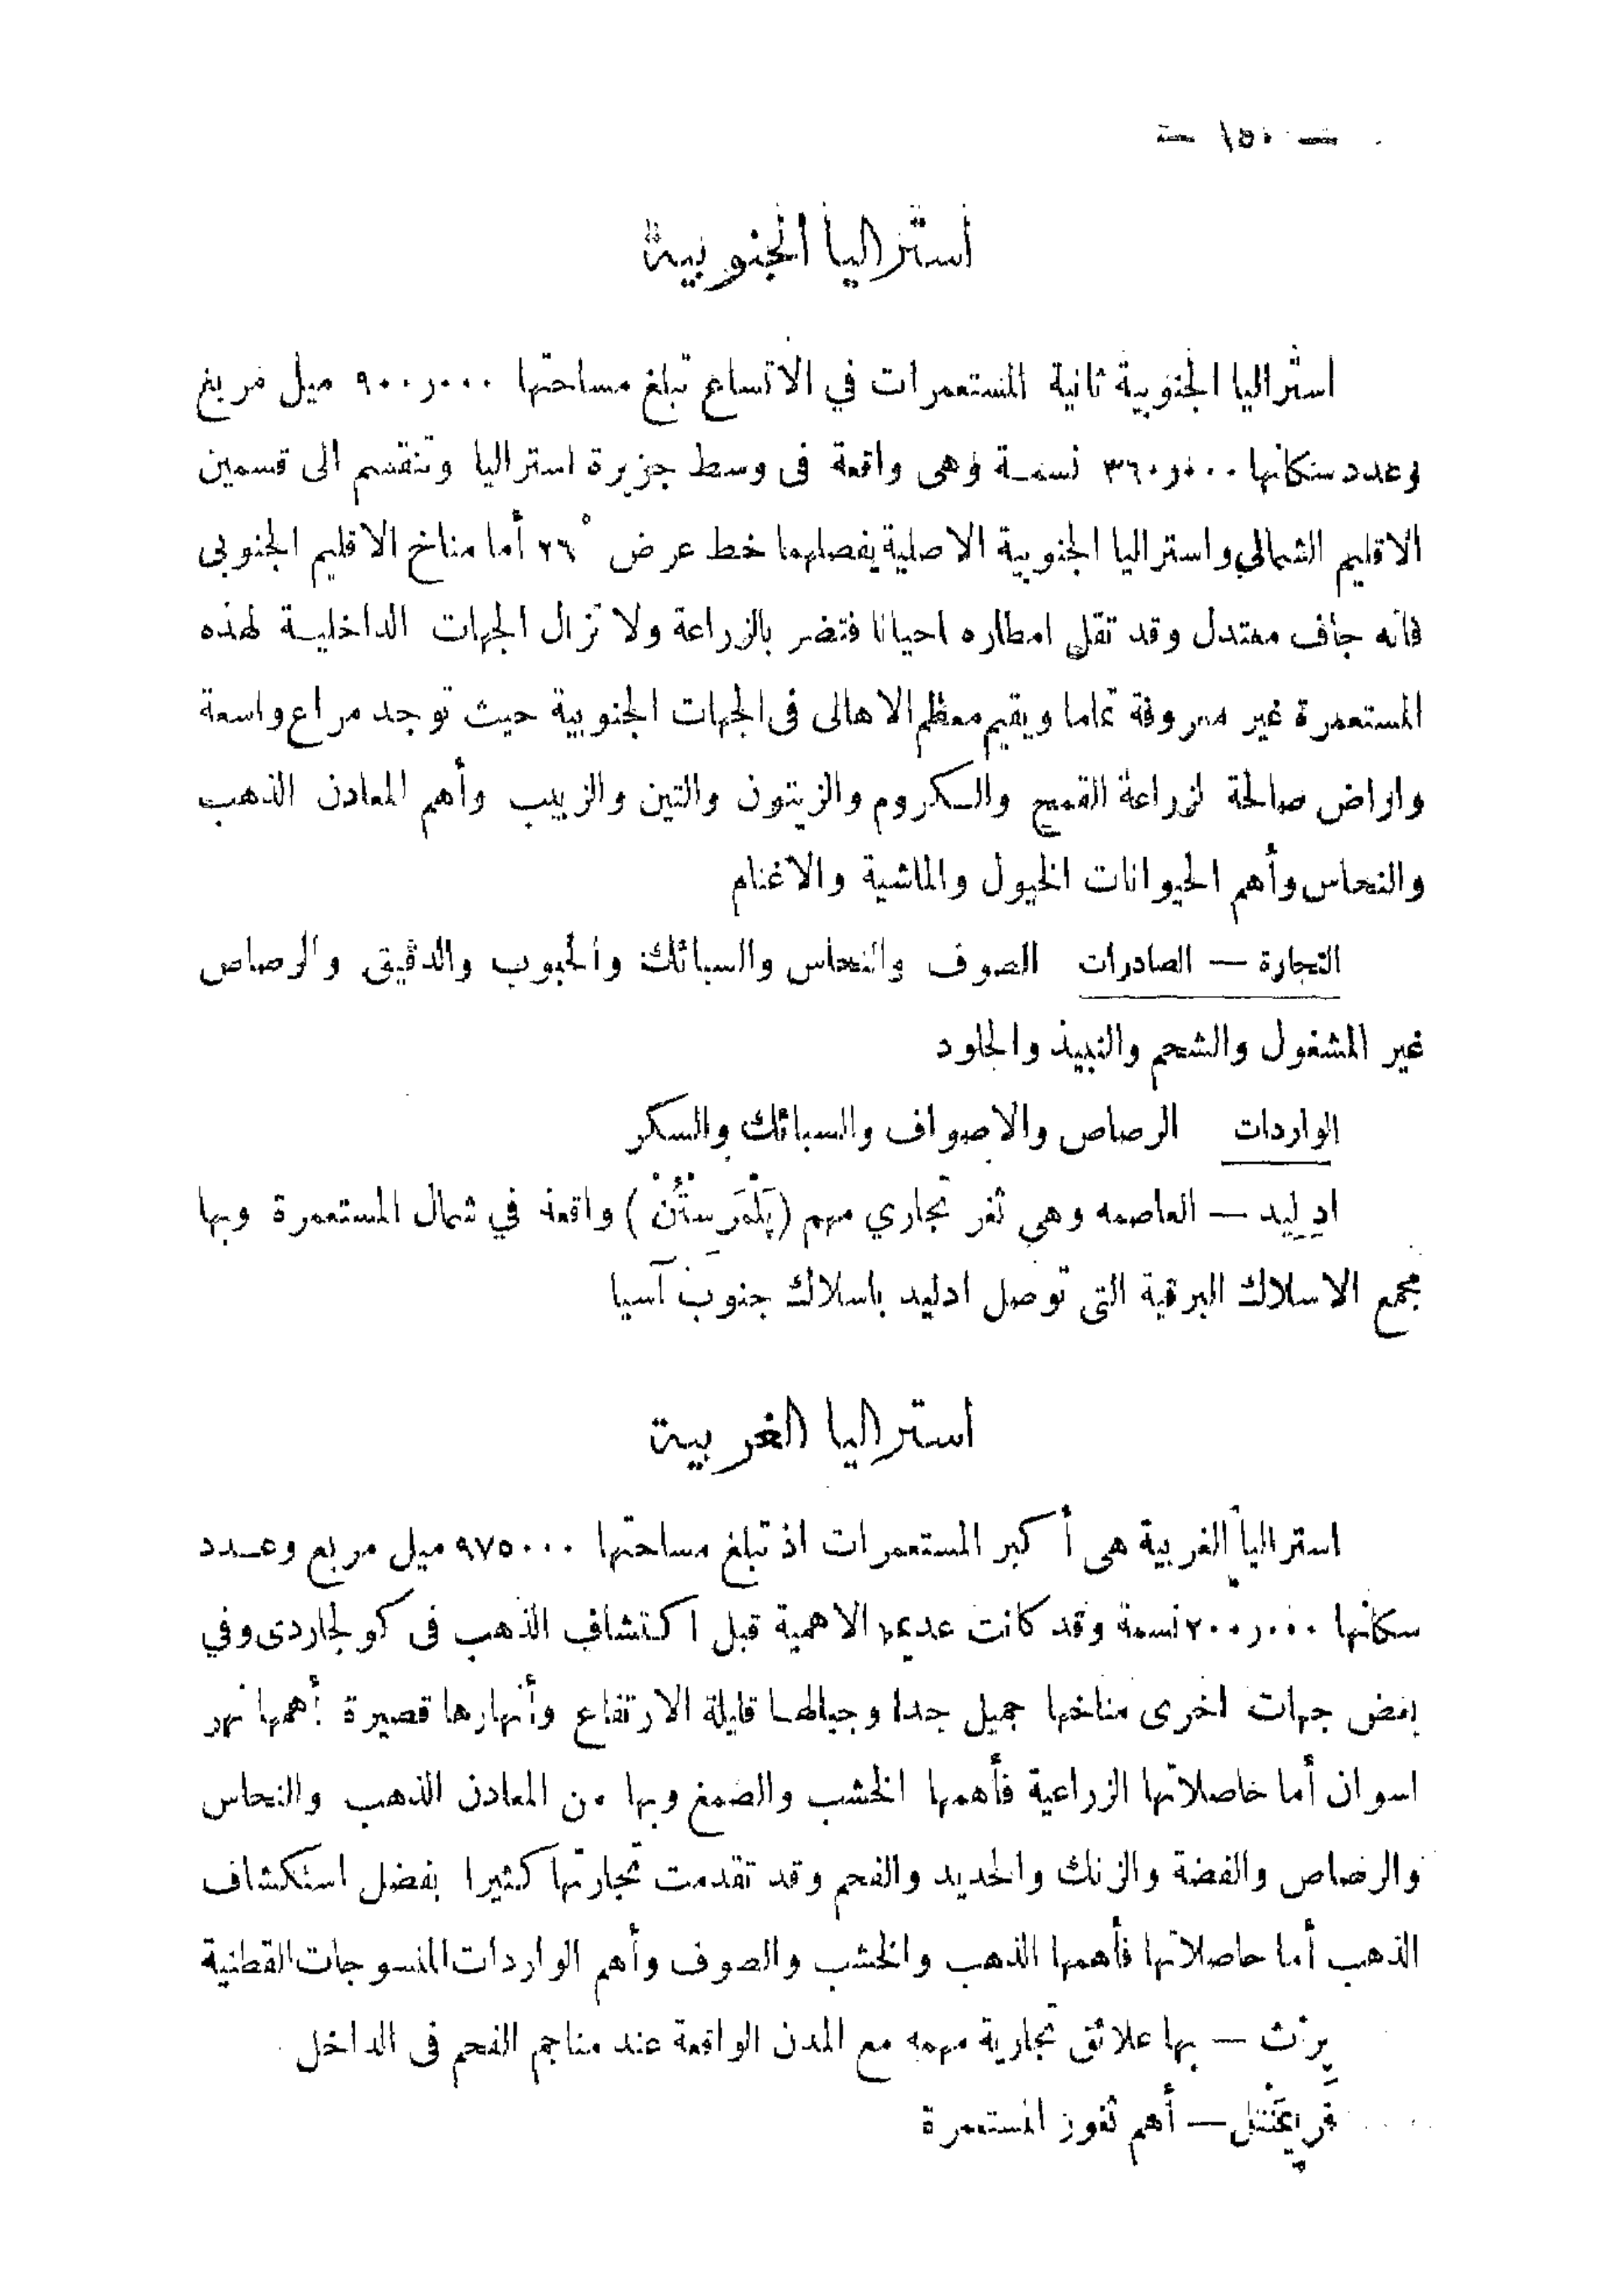 — ١٥٠ —
استراليا الجنوبية
استراليا الجنوبية ثانية المستعمرات في الاتساع تبلغ مساحتها ٩٠٠٫٠٠٠ ميل مربع
وعدد سكانها ٣٦٠٫٠٠٠ نسمة وهى واقعة فى وسط جزيرة استراليا وتنقسم الى قسمين
الاقليم الشمالي واستراليا الجنوبية الاصلية يفصلهما خط عرض ٢٦° أما مناخ الاقليم الجنوبى
فانه جاف معتدل وقد تقل امطاره احيانا فتضر بالزراعة ولا تزال الجهات الداخلية لهذه
المستعمرة غير معروفة تماما ويقيم معظم الاهالى فى الجهات الجنوبية حيث توجد مراع واسعة
واراض صالحة لزراعة القمح والكروم والزيتون والتين والزبيب وأهم المعادن الذهب
والنحاس وأهم الحيوانات الخيول والماشية والاغنام
التجارة — الصادرات الصوف والنحاس والسبائك والحبوب والدقيق والرصاص
غير المشغول والشحم والنبيذ والجلود
الواردات الرصاص والاصواف والسبائك والسكر
ادِلِيد — العاصمه وهي ثغر تجاري مهم (پَلْمَرَسِتُنْ) واقعة في شمال المستعمرة وبها
مجمع الاسلاك البرقية التى توصل ادليد باسلاك جنوب آسيا
استراليا الغربية
استراليا الغربية هى أكبر المستعمرات اذ تبلغ مساحتها ٩٧٥٠٠٠ ميل مربع وعدد
سكانها ٢٠٠٫٠٠٠ نسمة وقد كانت عديمة الاهمية قبل اكتشاف الذهب فى كولجاردى وفي
بعض جهات اخرى مناخها جميل جدا وجبالها قليلة الارتفاع وأنهارها قصيرة أهمها نهر
اسوان أما حاصلاتها الزراعية فأهمها الخشب والصمغ وبها من المعادن الذهب والنحاس
والرصاص والفضة والزنك والحديد والفحم وقد تقدمت تجارتها كثيرا بفضل استكشاف
الذهب أما حاصلاتها فأهمها الذهب والخشب والصوف وأهم الواردات المنسوجات القطنية
پرث — بها علائق تجارية مهمه مع المدن الواقعة عند مناجم الفحم فى الداخل
— أهم ثغور المستعمرة